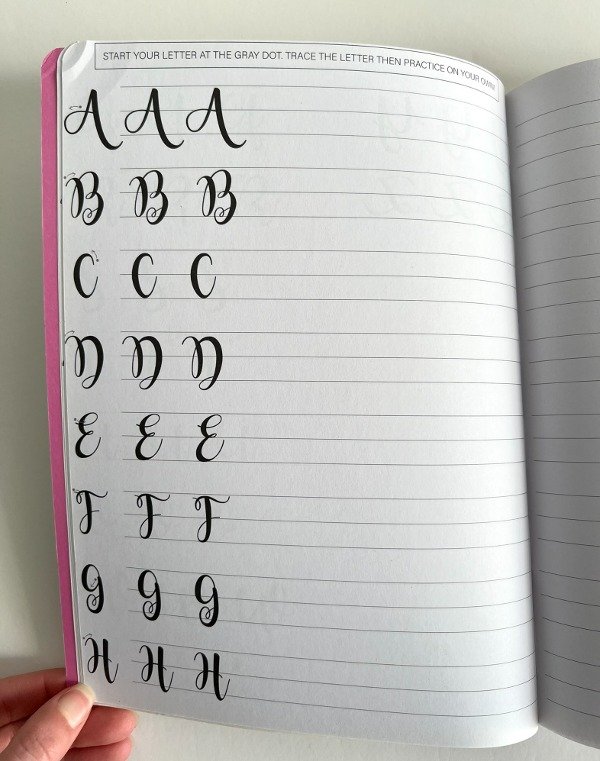 START YOUR LETTER AT THE GRAY DOT. TRACE THE LETTER THEN PRACTICE ON YOUR OWN!
A A A
B B B
C C C
D D D
E E E
F F F
G G G
H H H